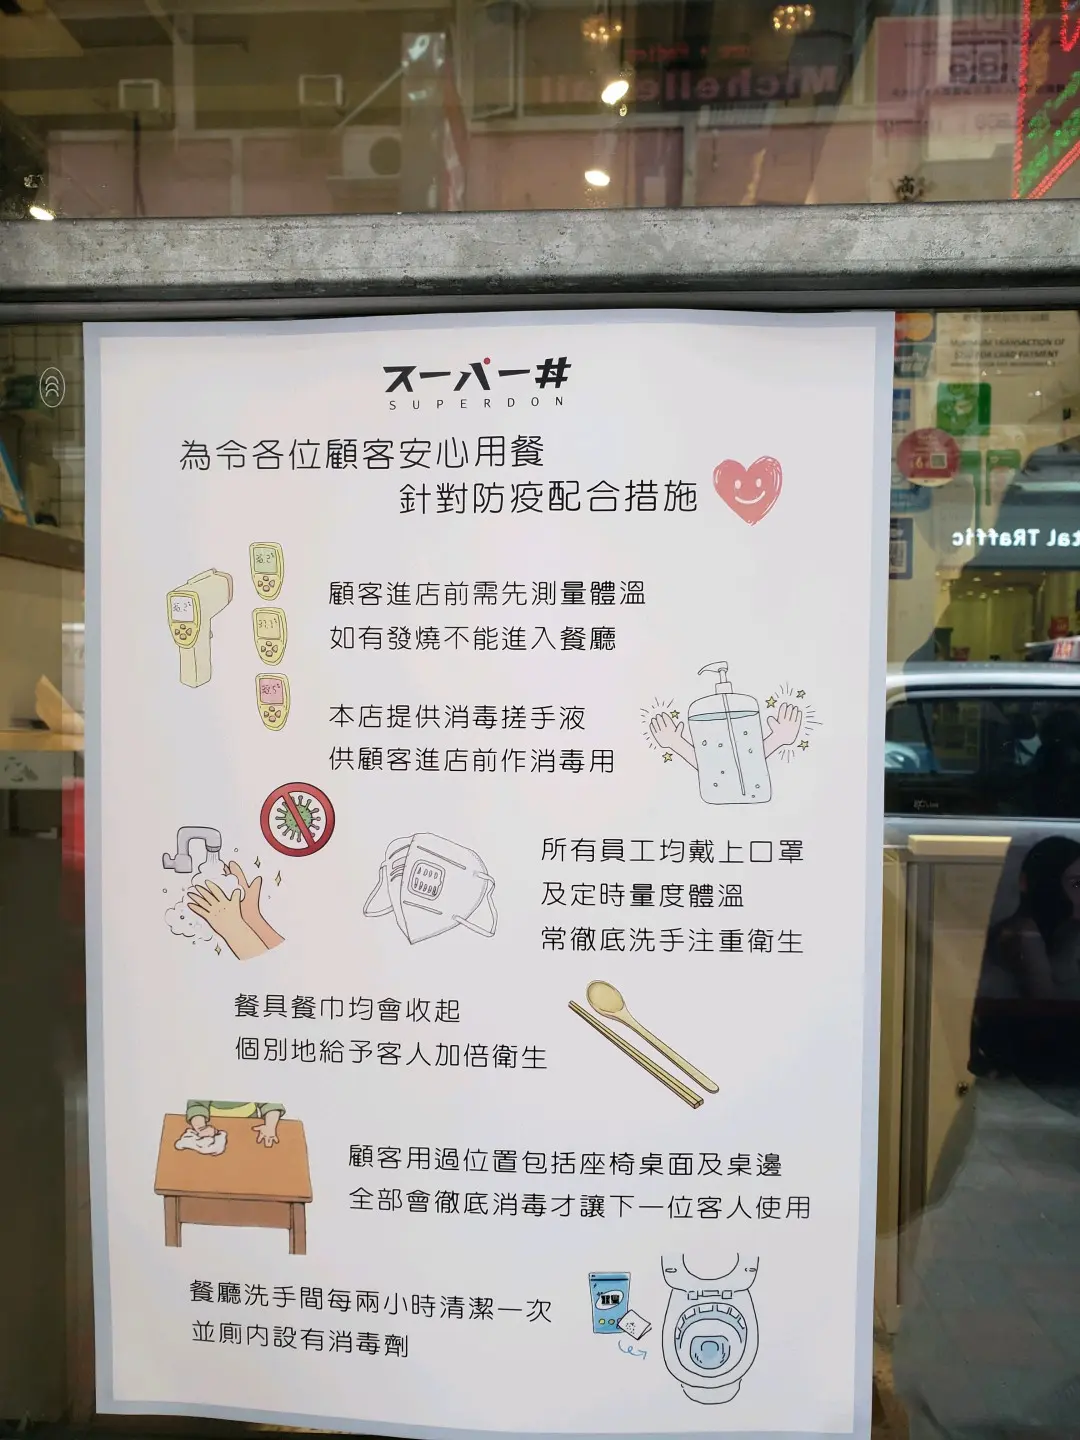 スーパー丼
SUPERDON
為令各位顧客安心用餐
針對防疫配合措施
顧客進店前需先測量體溫
如有發燒不能進入餐廳
本店提供消毒搓手液
供顧客進店前作消毒用
所有員工均戴上口罩
及定時量度體溫
常徹底洗手注重衛生
餐具餐巾均會收起
個別地給予客人加倍衛生
顧客用過位置包括座椅桌面及桌邊
全部會徹底消毒才讓下一位客人使用
餐廳洗手間每兩小時清潔一次
並廁内設有消毒劑
MINIMUM TRANSACTION OF